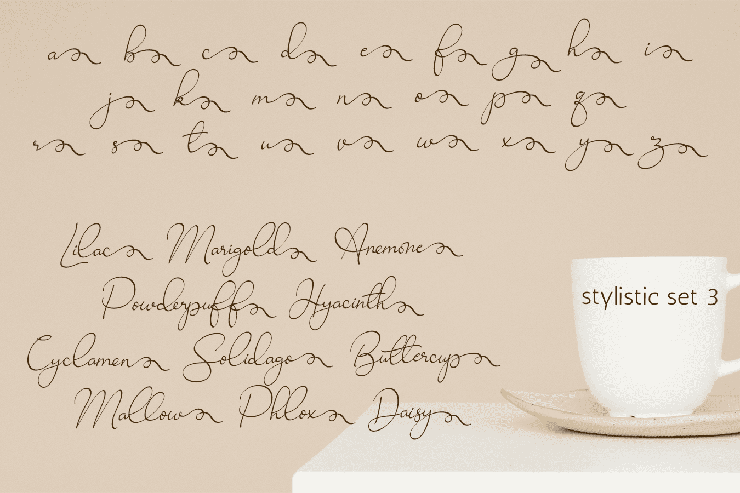 a b c d e f g h i
j k m n o p q
r s t u v w x y z
Lilac Marigold Anemone
Powderpuff Hyacinth
Cyclamen Solidago Buttercup
Mallow Phlox Daisy
stylistic set 3